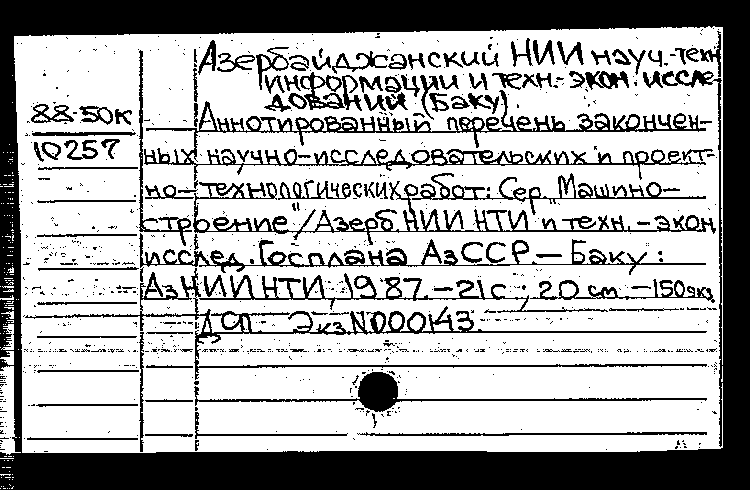 Азербайджанский НИИ науч.-техн
информации и техн.-экон. иссле-
дований (Баку).
88-50к
Аннотированный перечень закончен-
10257
ных научно-исследовательских и проект-
но-технологических работ: Сер. „Машино-
строение"/Азерб. НИИ НТИ и техн.-экон.
исслед. Госплана АзССР. — Баку:
АзНИИ НТИ, 1987. — 21с ; 20 см. — 150экз
ДСП. Экз.N000143.